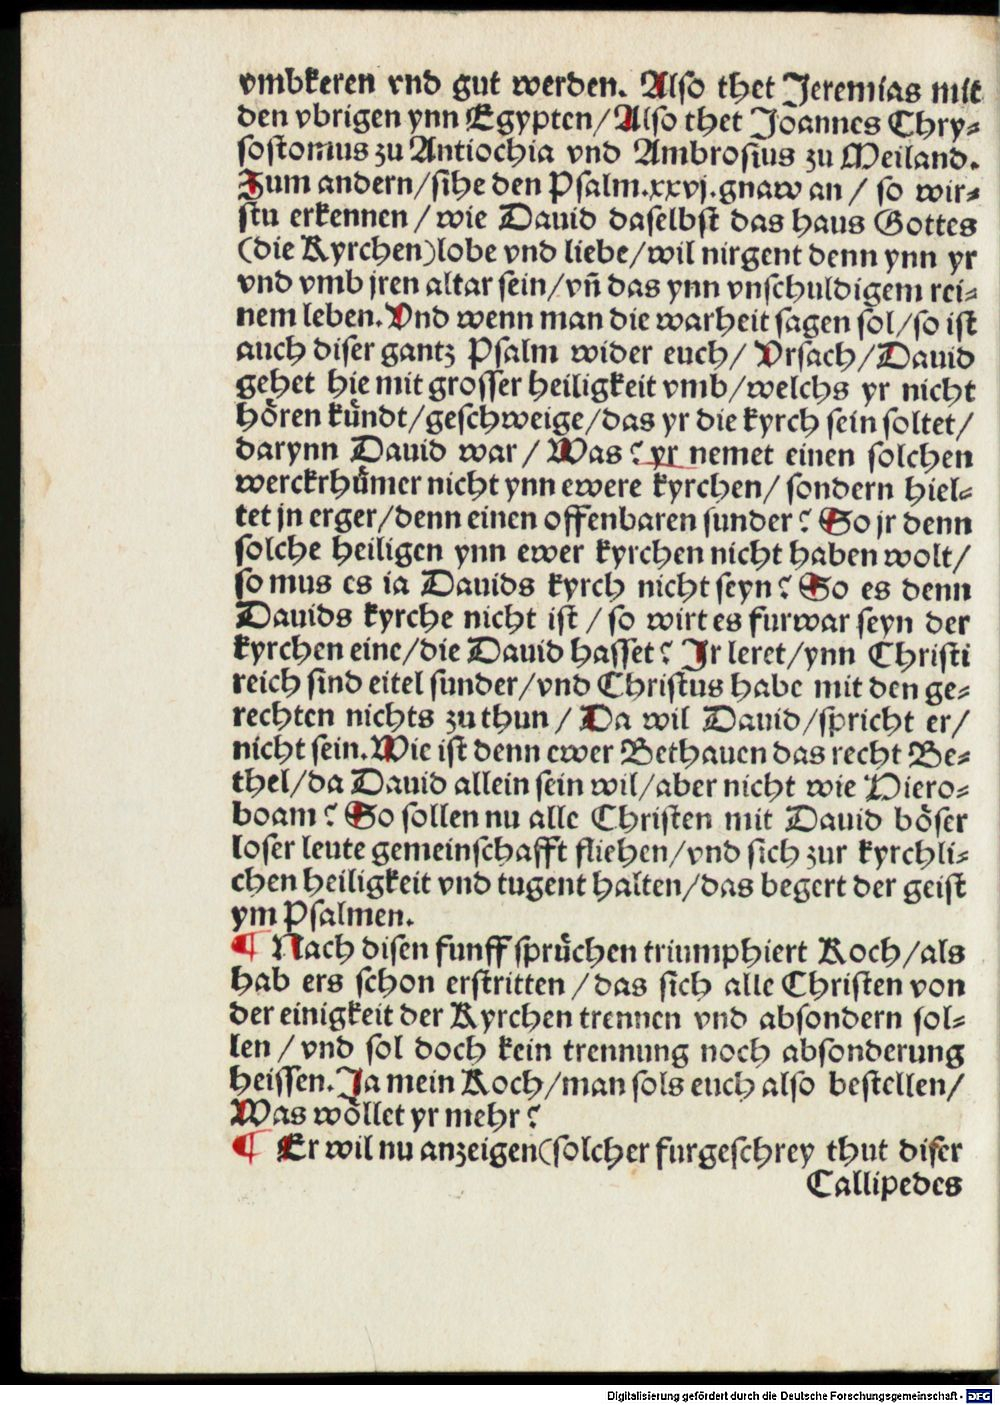 vmbkeren vnd gut werden. Also thet Jeremias mit
den vbrigen ynn Egypten/Also thet Joannes Chry-
sostomus zu Antiochia vnd Ambrosius zu Meiland.
Zum andern/sihe den Psalm.xxvj.gnaw an / so wir-
stu erkennen / wie Dauid daselbst das haus Gottes
(die Kyrchen)lobe vnd liebe/wil nirgent denn ynn yr
vnd vmb jren altar sein/vñ das ynn vnschuldigem rei-
nem leben. Vnd wenn man die warheit sagen sol/so ist
auch diser gantz Psalm wider euch/ Vrsach/Dauid
gehet hie mit grosser heiligkeit vmb/welchs yr nicht
hoͤren kuͤndt/geschweige/das yr die kyrch sein soltet/
darynn Dauid war / Was? yr nemet einen solchen
werckrhuͤmer nicht ynn ewere kyrchen/ sondern hiel-
tet jn erger/denn einen offenbaren sunder? So jr denn
solche heiligen ynn ewer kyrchen nicht haben wolt/
so mus es ia Dauids kyrch nicht seyn? So es denn
Dauids kyrche nicht ist / so wirt es furwar seyn der
kyrchen eine/die Dauid hasset? Jr leret/ynn Christi
reich sind eitel sunder/vnd Christus habe mit den ge-
rechten nichts zu thun / Da wil Dauid/spricht er/
nicht sein. Wie ist denn ewer Bethauen das recht Be-
thel/da Dauid allein sein wil/aber nicht wie Hiero-
boam? So sollen nu alle Christen mit Dauid boͤser
loser leute gemeinschafft fliehen/vnd sich zur kyrchli-
chen heiligkeit vnd tugent halten/das begert der geist
ym Psalmen.
¶ Nach disen funff spruͤchen triumphiert Koch/als
hab ers schon erstritten /das sich alle Christen von
der einigkeit der Kyrchen trennen vnd absondern sol-
len / vnd sol doch kein trennung noch absonderung
heissen. Ja mein Koch/man sols euch also bestellen/
Was woͤllet yr mehr?
¶ Er wil nu anzeigen(solcher furgeschrey thut diser
Callipedes
Digitalisierung gefördert durch die Deutsche Forschungsgemeinschaft - DFG